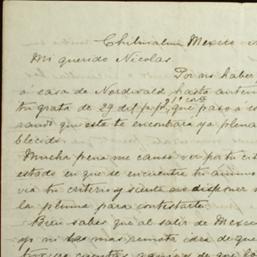 Chihuahua Mexico
Mi querido Nicolas
Por no haber
á casa de Nordwald hasta
tu grata de 29 del p. p.  que paso á
que este te encontrara ya plena
blecido.
Mucha pena me causó ver por tu
estado en que se encuentra tu animo
via tu criterio y siento no disponer
la pluma para contestarte.
Bien sabes que al salir de Mexico
yo ni la mas remota idea de que